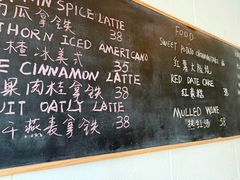 SPICE LATTE
南瓜拿铁 38
THORN ICED AMERICANO
楂冰美式 35
CINNAMON LATTE
果肉桂拿铁 38
OATLY LATTE
燕麦拿铁 38
FOOD
SWEET POTATO
38
RED DATE CAKE
红枣糕 38
MULLED WINE
热红酒 58